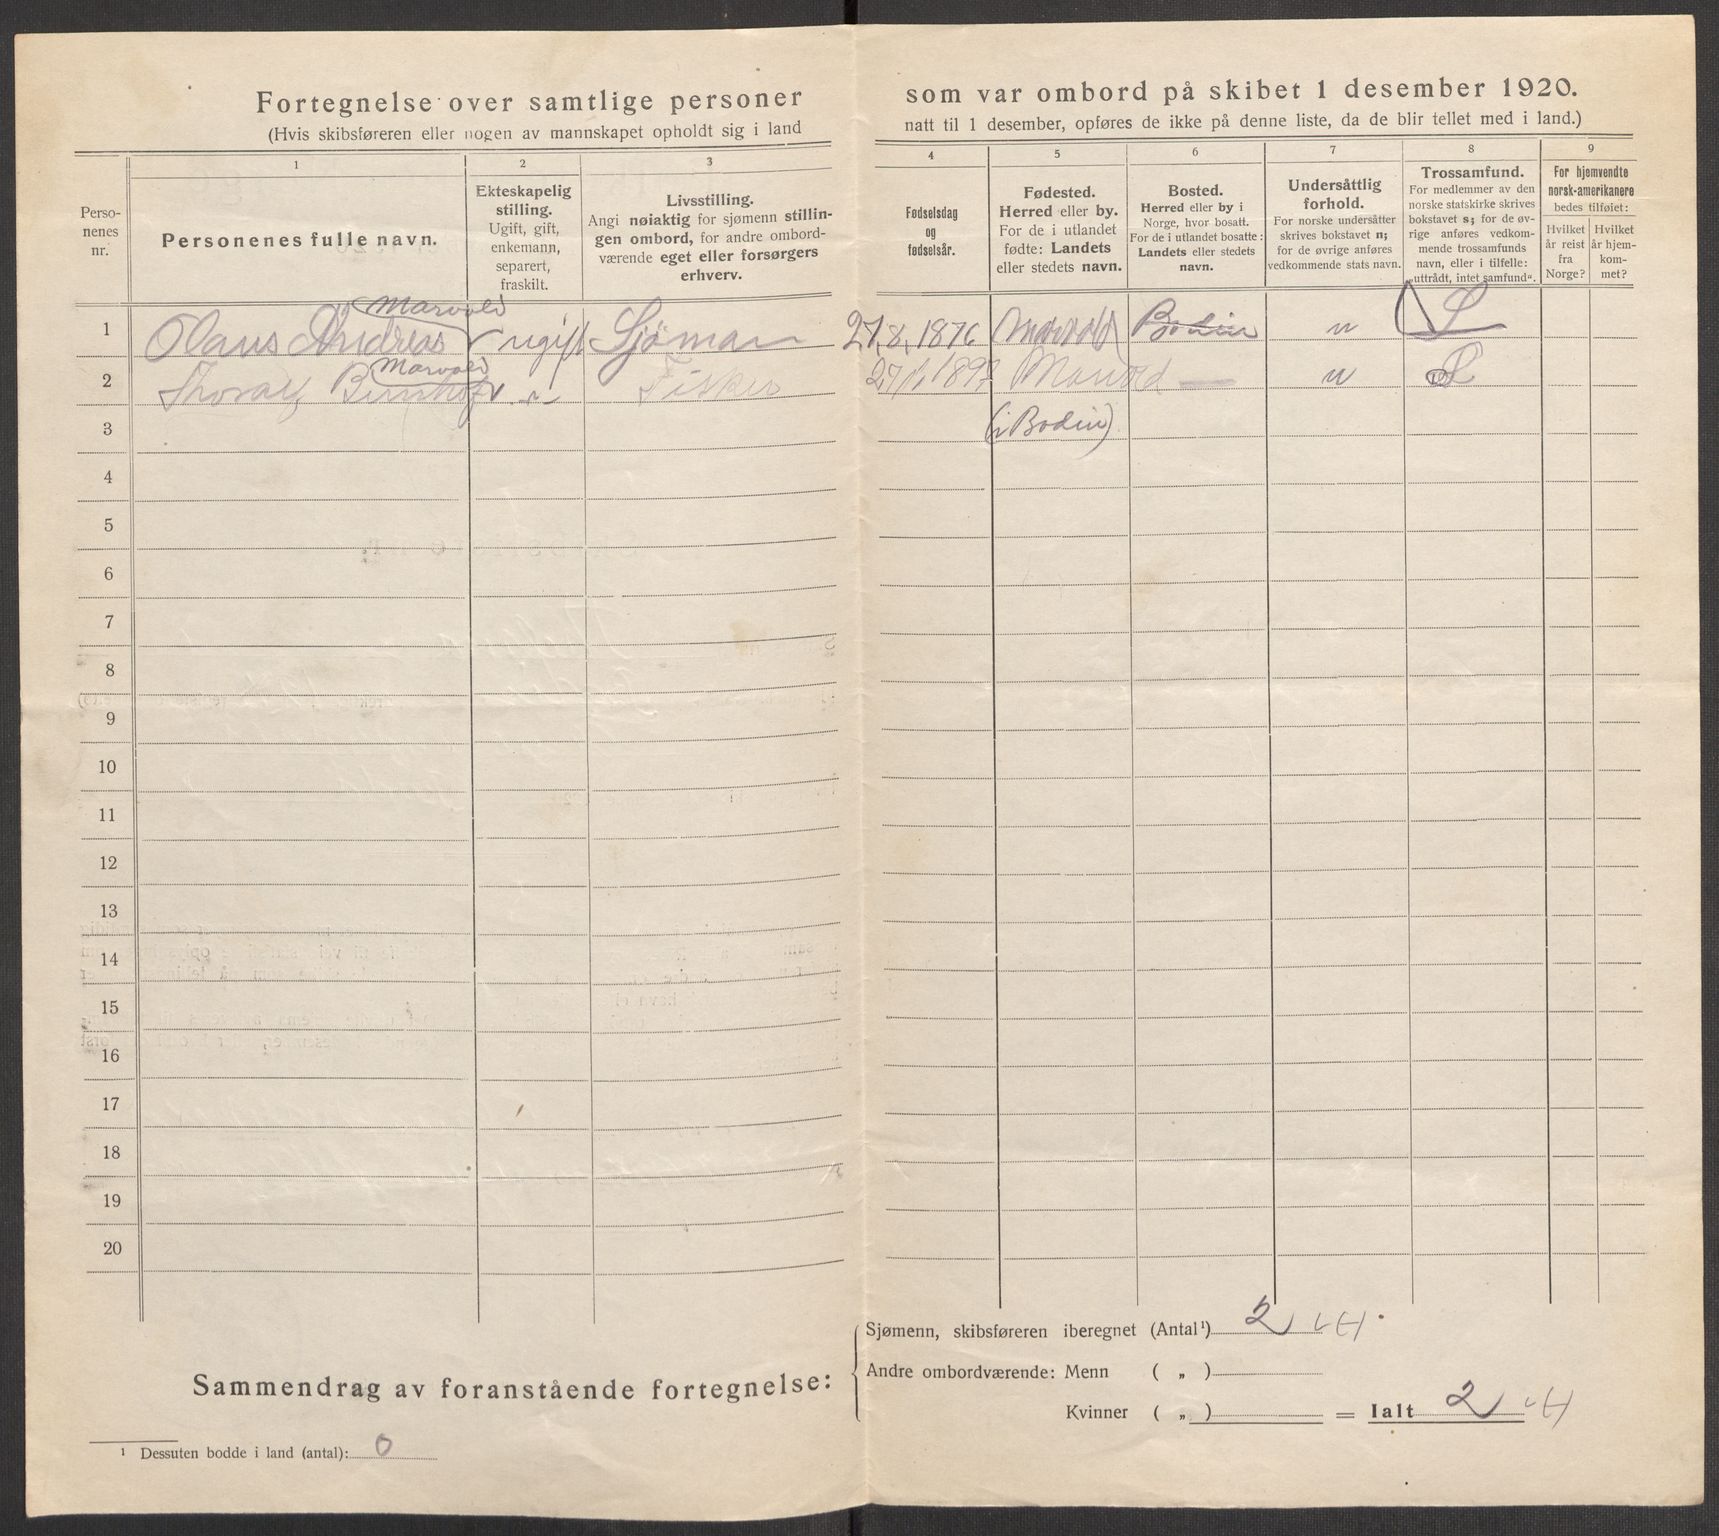 Fortegnelse over samtlige personer som var ombord på skibet 1 desember 1920.
(Hvis skibsføreren eller nogen av mannskapet opholdt sig i land natt til 1 desember, opføres de ikke på denne liste, da de blir tellet med i land.)
Personenes nr.
1
Personenes fulle navn.
2
Ekteskapelig stilling.
Ugift, gift, enkemann, separert, fraskilt.
3
Livsstilling.
Angi nøiaktig for sjømenn stillingen ombord, for andre ombordværende eget eller forsørgers erhverv.
4
Fødselsdag og fødselsår.
5
Fødested.
Herred eller by.
For de i utlandet fødte: Landets eller stedets navn.
6
Bosted.
Herred eller by i Norge, hvor bosatt.
For de i utlandet bosatte: Landets eller stedets navn.
7
Undersåttlig forhold.
For norske undersåtter skrives bokstavet n; for de øvrige anføres vedkommende stats navn.
8
Trossamfund.
For medlemmer av den norske statskirke skrives bokstavet s; for de øvrige anføres vedkommende trossamfunds navn, eller i tilfelle: „uttrådt, intet samfund“.
9
For hjemvendte norsk-amerikanere bedes tilføiet:
Hvilket år reist fra Norge?
Hvilket år hjemkommet?
Marvold
1 Olaus Andreas ugift Sjöman 27.8.1876 Marvold Bodin n S
Marvold
2 Fisker Marvold — n S
3 (i Bodin)
4
5
6
7
8
9
10
11
12
13
14
15
16
17
18
19
20
Sammendrag av foranstående fortegnelse:
Sjømenn, skibsføreren iberegnet (Antal¹) 2
Andre ombordværende: Menn ( „ )
Kvinner ( „ ) = Ialt 2
¹ Dessuten bodde i land (antal): 0